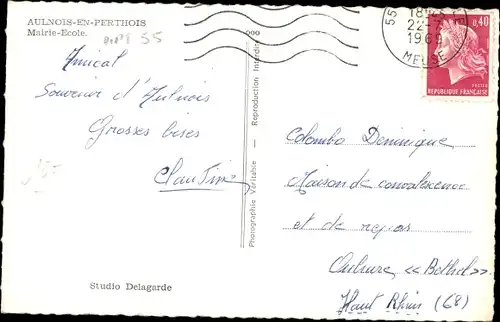 AULNOIS-EN-PERTHOIS
Mairie-Ecole.
55
Amical
Souvenir d'Aulnois
Grosses bises
Claudine
Studio Delagarde
Photographie Véritable — Reproduction Interdite
55
18H
22-7
1969
MEUSE
0,40
POSTES
REPUBLIQUE FRANÇAISE
Colombo Dominique
Maison de convalescence
et de repos
«Bethel»
Haut Rhin (68)